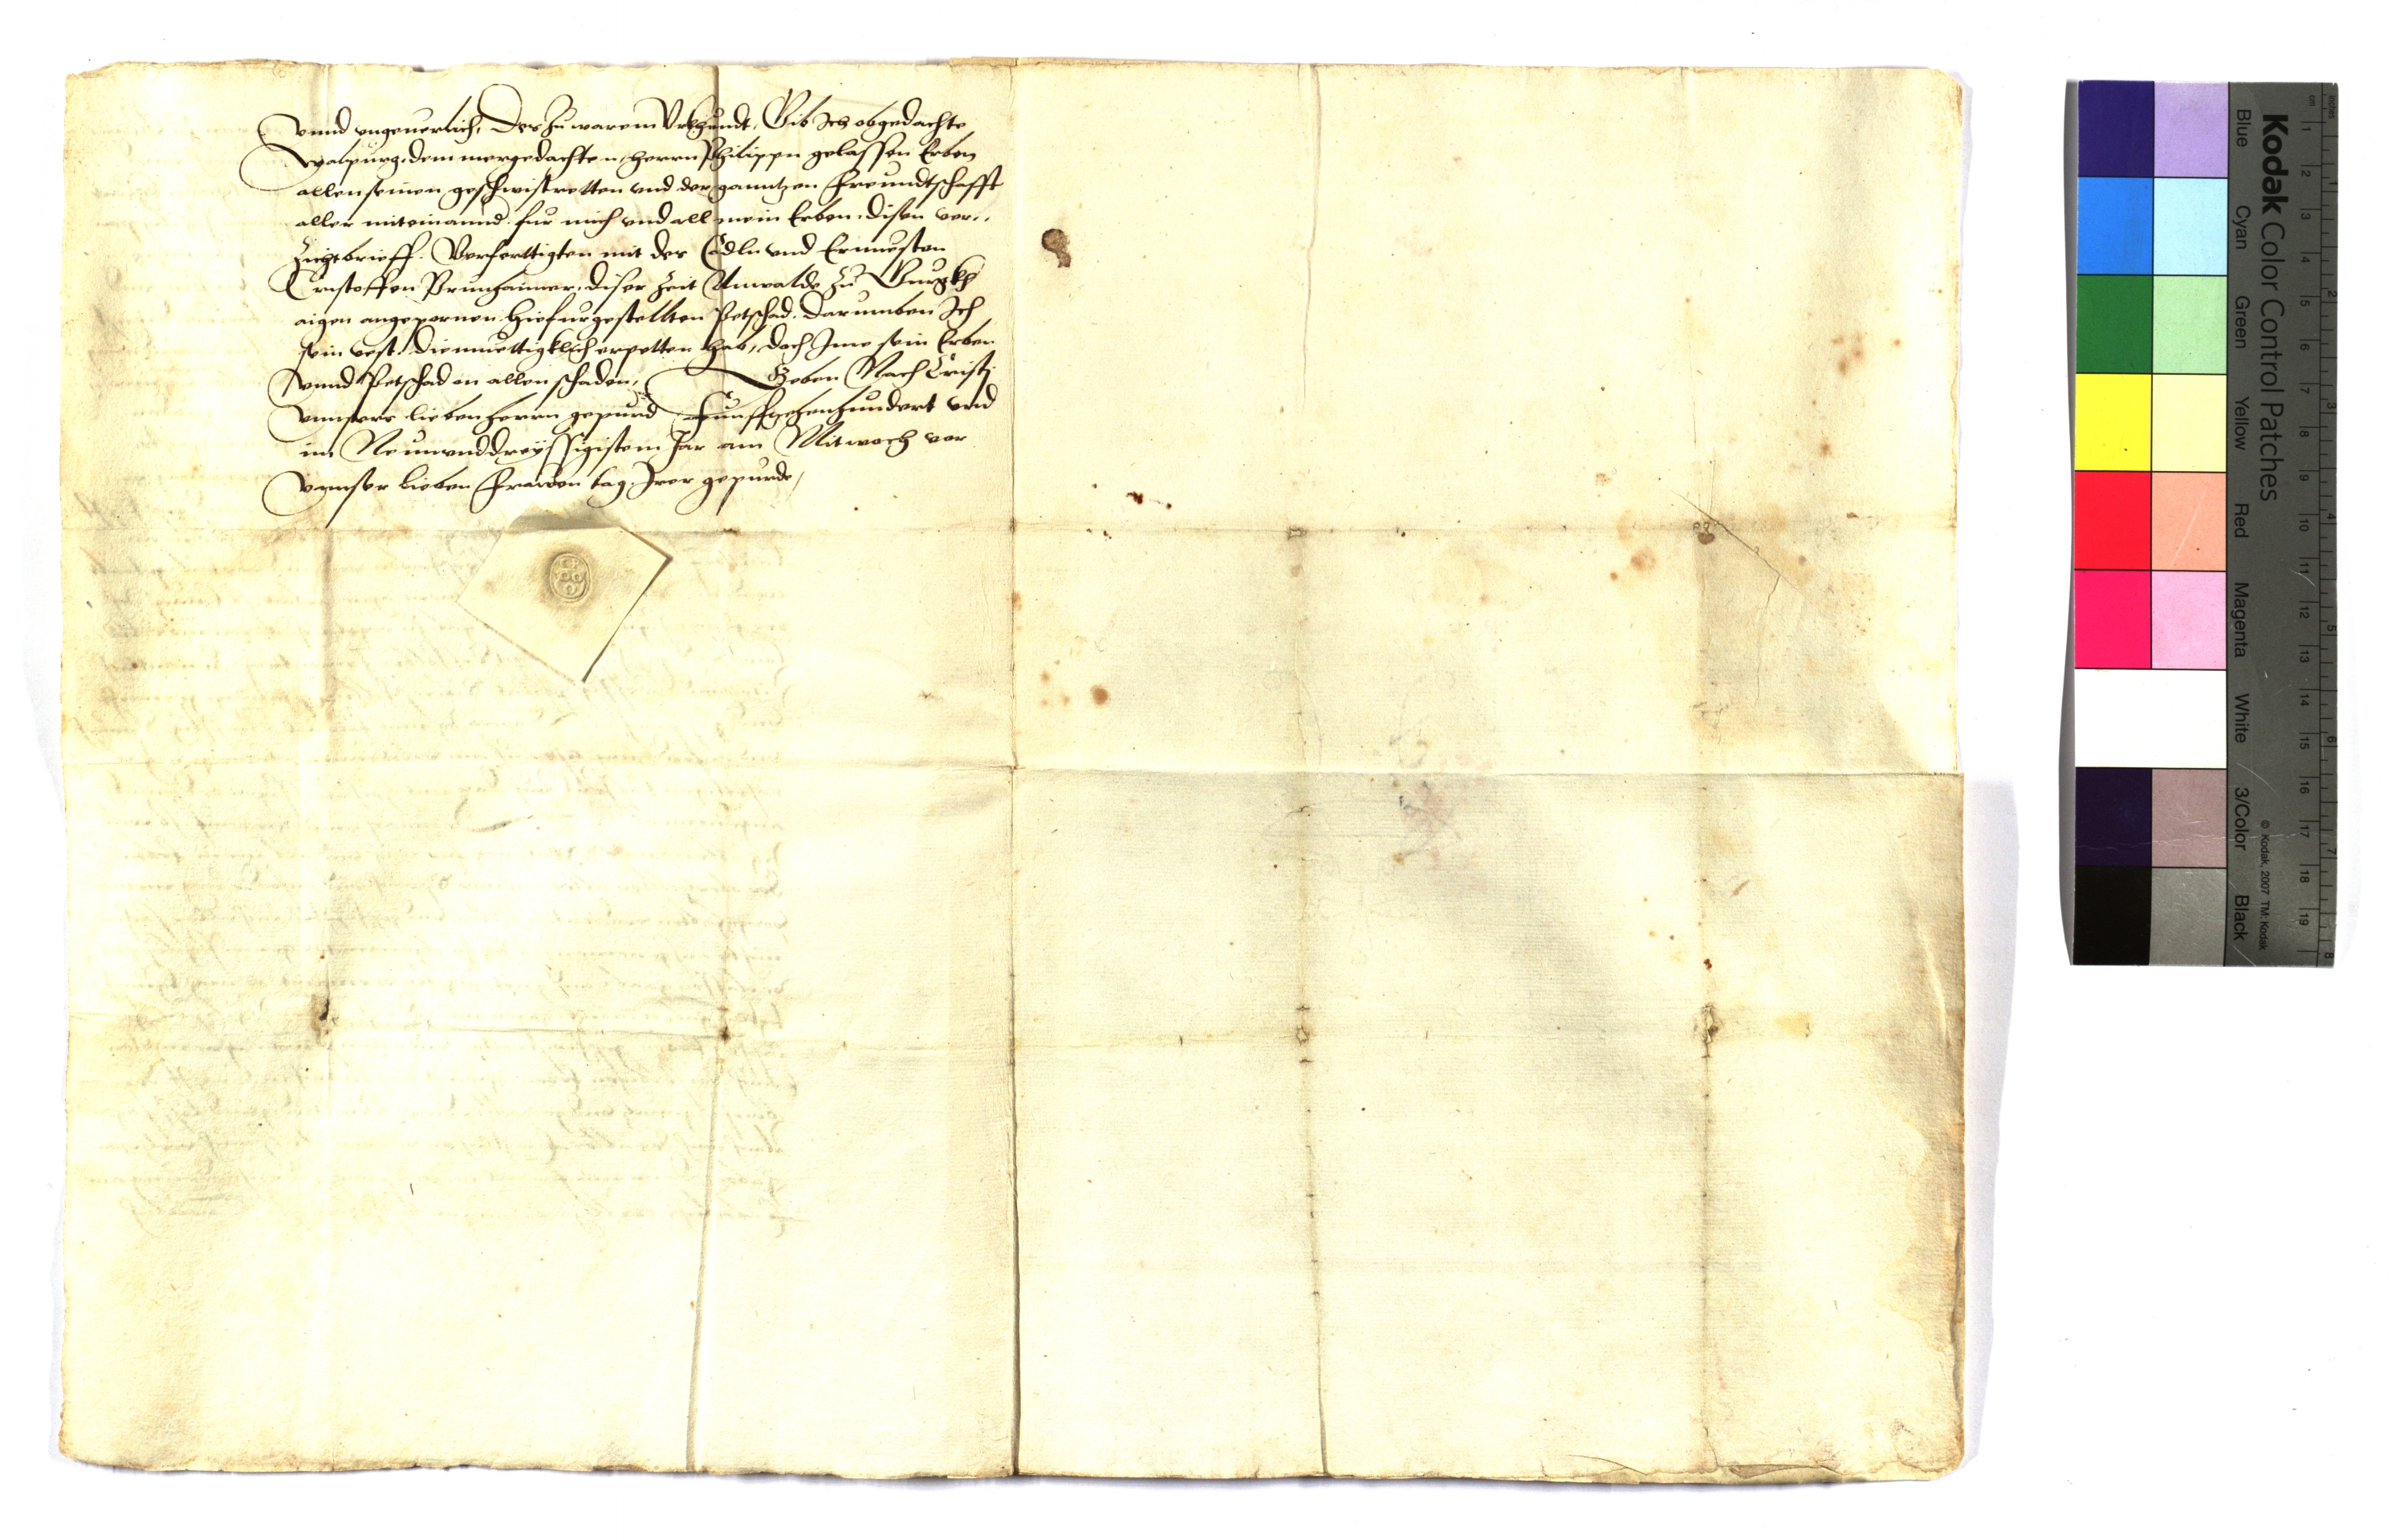 vnnd vngeuerlich, Des zu warem Vrkhundt, Gib Ich obgedachte
Walpurg, dem mergedachten, herrn Philippn gelassen Erben
allen seinen geschwistretten vnd der ganntzen Freundtschafft
aller miteinannd. fur mich vnd all mein Erben, disen ver,,
zichtbrieff. Verferttigten mit des Edln vnd Ernuesten
Cristoffen Prunhaimer, diser Zeit Anwalde zu Gurgkh
aigen angepornen hiefurgestellten Petschad. Darumben Ich
sein vest. diemuettigklich erpetten hab, doch Ime sein Erben
vnnd Petschad on allen schaden, Geben Nach Cristj
vnnsers lieben herrn gepurd Funffzehenhundert vnd
im Neunvnddreyssigistem Jar am Mitwoch vor
vnnser lieben Frawen tag Irer gepurde,
Kodak Color Control Patches
Blue Cyan Green Yellow Red Magenta White 3/Color Black
© Kodak, 2007 TM: Kodak
inches 1 2 3 4 5 6 7 8
cm 1 2 3 4 5 6 7 8 9 10 11 12 13 14 15 16 17 18 19